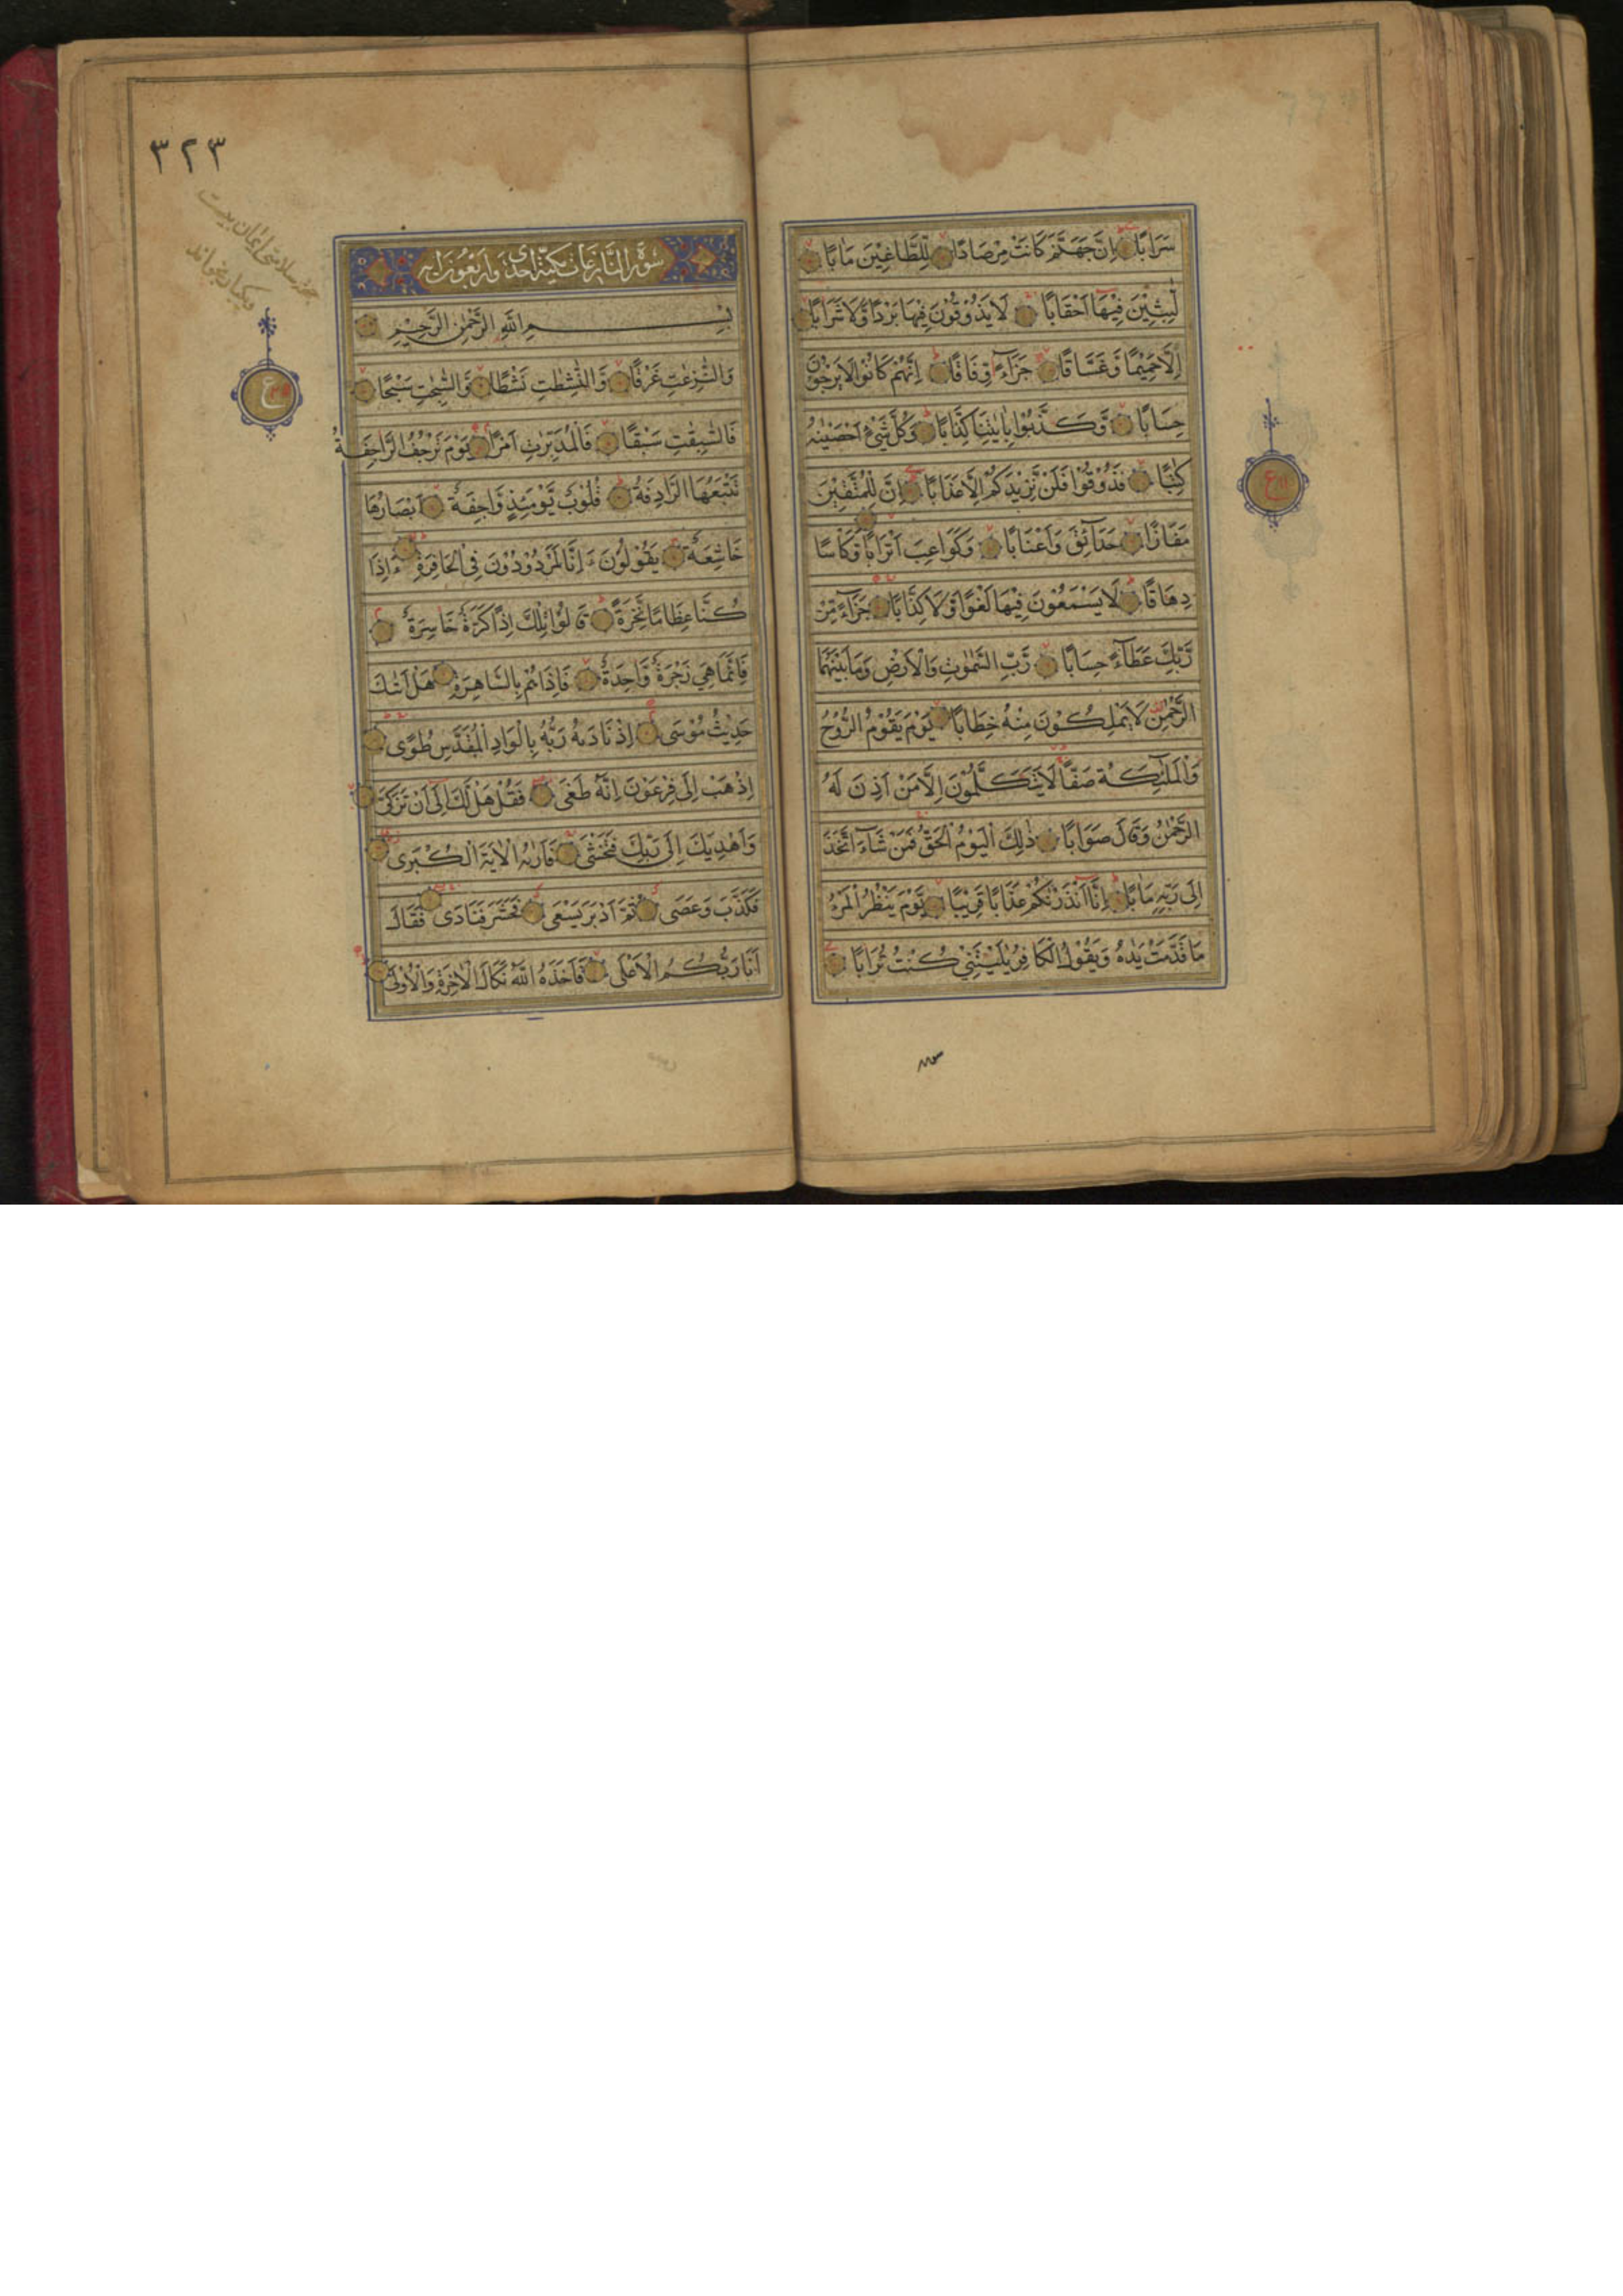 سَرَابًا اِنَّ جَهَنَّمَ كَانَتْ مِرْصَادًا لِّلطَّاغِيْنَ مَاٰبًا
لّٰبِثِيْنَ فِيْهَا اَحْقَابًا لَا يَذُوْقُوْنَ فِيْهَا بَرْدًا وَّلَا شَرَابًا
اِلَّا حَمِيْمًا وَّغَسَّاقًا جَزَآءً وِّفَاقًا اِنَّهُمْ كَانُوْا لَا يَرْجُوْنَ
حِسَابًا وَّكَذَّبُوْا بِاٰيٰتِنَا كِذَّابًا وَكُلَّ شَيْءٍ اَحْصَيْنٰهُ
كِتٰبًا فَذُوْقُوْا فَلَنْ نَّزِيْدَكُمْ اِلَّا عَذَابًا اِنَّ لِلْمُتَّقِيْنَ
مَفَازًا حَدَآئِقَ وَاَعْنَابًا وَّكَوَاعِبَ اَتْرَابًا وَّكَاْسًا
دِهَاقًا لَا يَسْمَعُوْنَ فِيْهَا لَغْوًا وَّلَا كِذَّابًا جَزَآءً مِّنْ
رَّبِّكَ عَطَآءً حِسَابًا رَّبِّ السَّمٰوٰتِ وَالْاَرْضِ وَمَا بَيْنَهُمَا
الرَّحْمٰنِ لَا يَمْلِكُوْنَ مِنْهُ خِطَابًا يَوْمَ يَقُوْمُ الرُّوْحُ
وَالْمَلٰٓئِكَةُ صَفًّا لَا يَتَكَلَّمُوْنَ اِلَّا مَنْ اَذِنَ لَهُ
الرَّحْمٰنُ وَقَالَ صَوَابًا ذٰلِكَ الْيَوْمُ الْحَقُّ فَمَنْ شَآءَ اتَّخَذَ
اِلٰى رَبِّهٖ مَاٰبًا اِنَّا اَنْذَرْنٰكُمْ عَذَابًا قَرِيْبًا يَّوْمَ يَنْظُرُ الْمَرْءُ
مَا قَدَّمَتْ يَدٰهُ وَيَقُوْلُ الْكَافِرُ يٰلَيْتَنِيْ كُنْتُ تُرَابًا
ع
٣٢٣
سُوْرَةُ النَّازِعَاتِ مَكِّيَّةٌ اِحْدٰى وَاَرْبَعُوْنَ اٰيَة
بِسْمِ اللّٰهِ الرَّحْمٰنِ الرَّحِيْمِ
وَالنّٰزِعٰتِ غَرْقًا وَّالنّٰشِطٰتِ نَشْطًا وَّالسّٰبِحٰتِ سَبْحًا
فَالسّٰبِقٰتِ سَبْقًا فَالْمُدَبِّرٰتِ اَمْرًا يَوْمَ تَرْجُفُ الرَّاجِفَةُ
تَتْبَعُهَا الرَّادِفَةُ قُلُوْبٌ يَّوْمَئِذٍ وَّاجِفَةٌ اَبْصَارُهَا
خَاشِعَةٌ يَقُوْلُوْنَ ءَاِنَّا لَمَرْدُوْدُوْنَ فِى الْحَافِرَةِ ءَاِذَا
كُنَّا عِظَامًا نَّخِرَةً قَالُوْا تِلْكَ اِذًا كَرَّةٌ خَاسِرَةٌ
فَاِنَّمَا هِيَ زَجْرَةٌ وَّاحِدَةٌ فَاِذَا هُمْ بِالسَّاهِرَةِ هَلْ اَتٰىكَ
حَدِيْثُ مُوْسَى اِذْ نَادٰىهُ رَبُّهُ بِالْوَادِ الْمُقَدَّسِ طُوًى
اِذْهَبْ اِلٰى فِرْعَوْنَ اِنَّهُ طَغٰى فَقُلْ هَلْ لَّكَ اِلٰى اَنْ تَزَكّٰى
وَاَهْدِيَكَ اِلٰى رَبِّكَ فَتَخْشٰى فَاَرٰىهُ الْاٰيَةَ الْكُبْرٰى
فَكَذَّبَ وَعَصٰى ثُمَّ اَدْبَرَ يَسْعٰى فَحَشَرَ فَنَادٰى فَقَالَ
اَنَا رَبُّكُمُ الْاَعْلٰى فَاَخَذَهُ اللّٰهُ نَكَالَ الْاٰخِرَةِ وَالْاُوْلٰى
ع